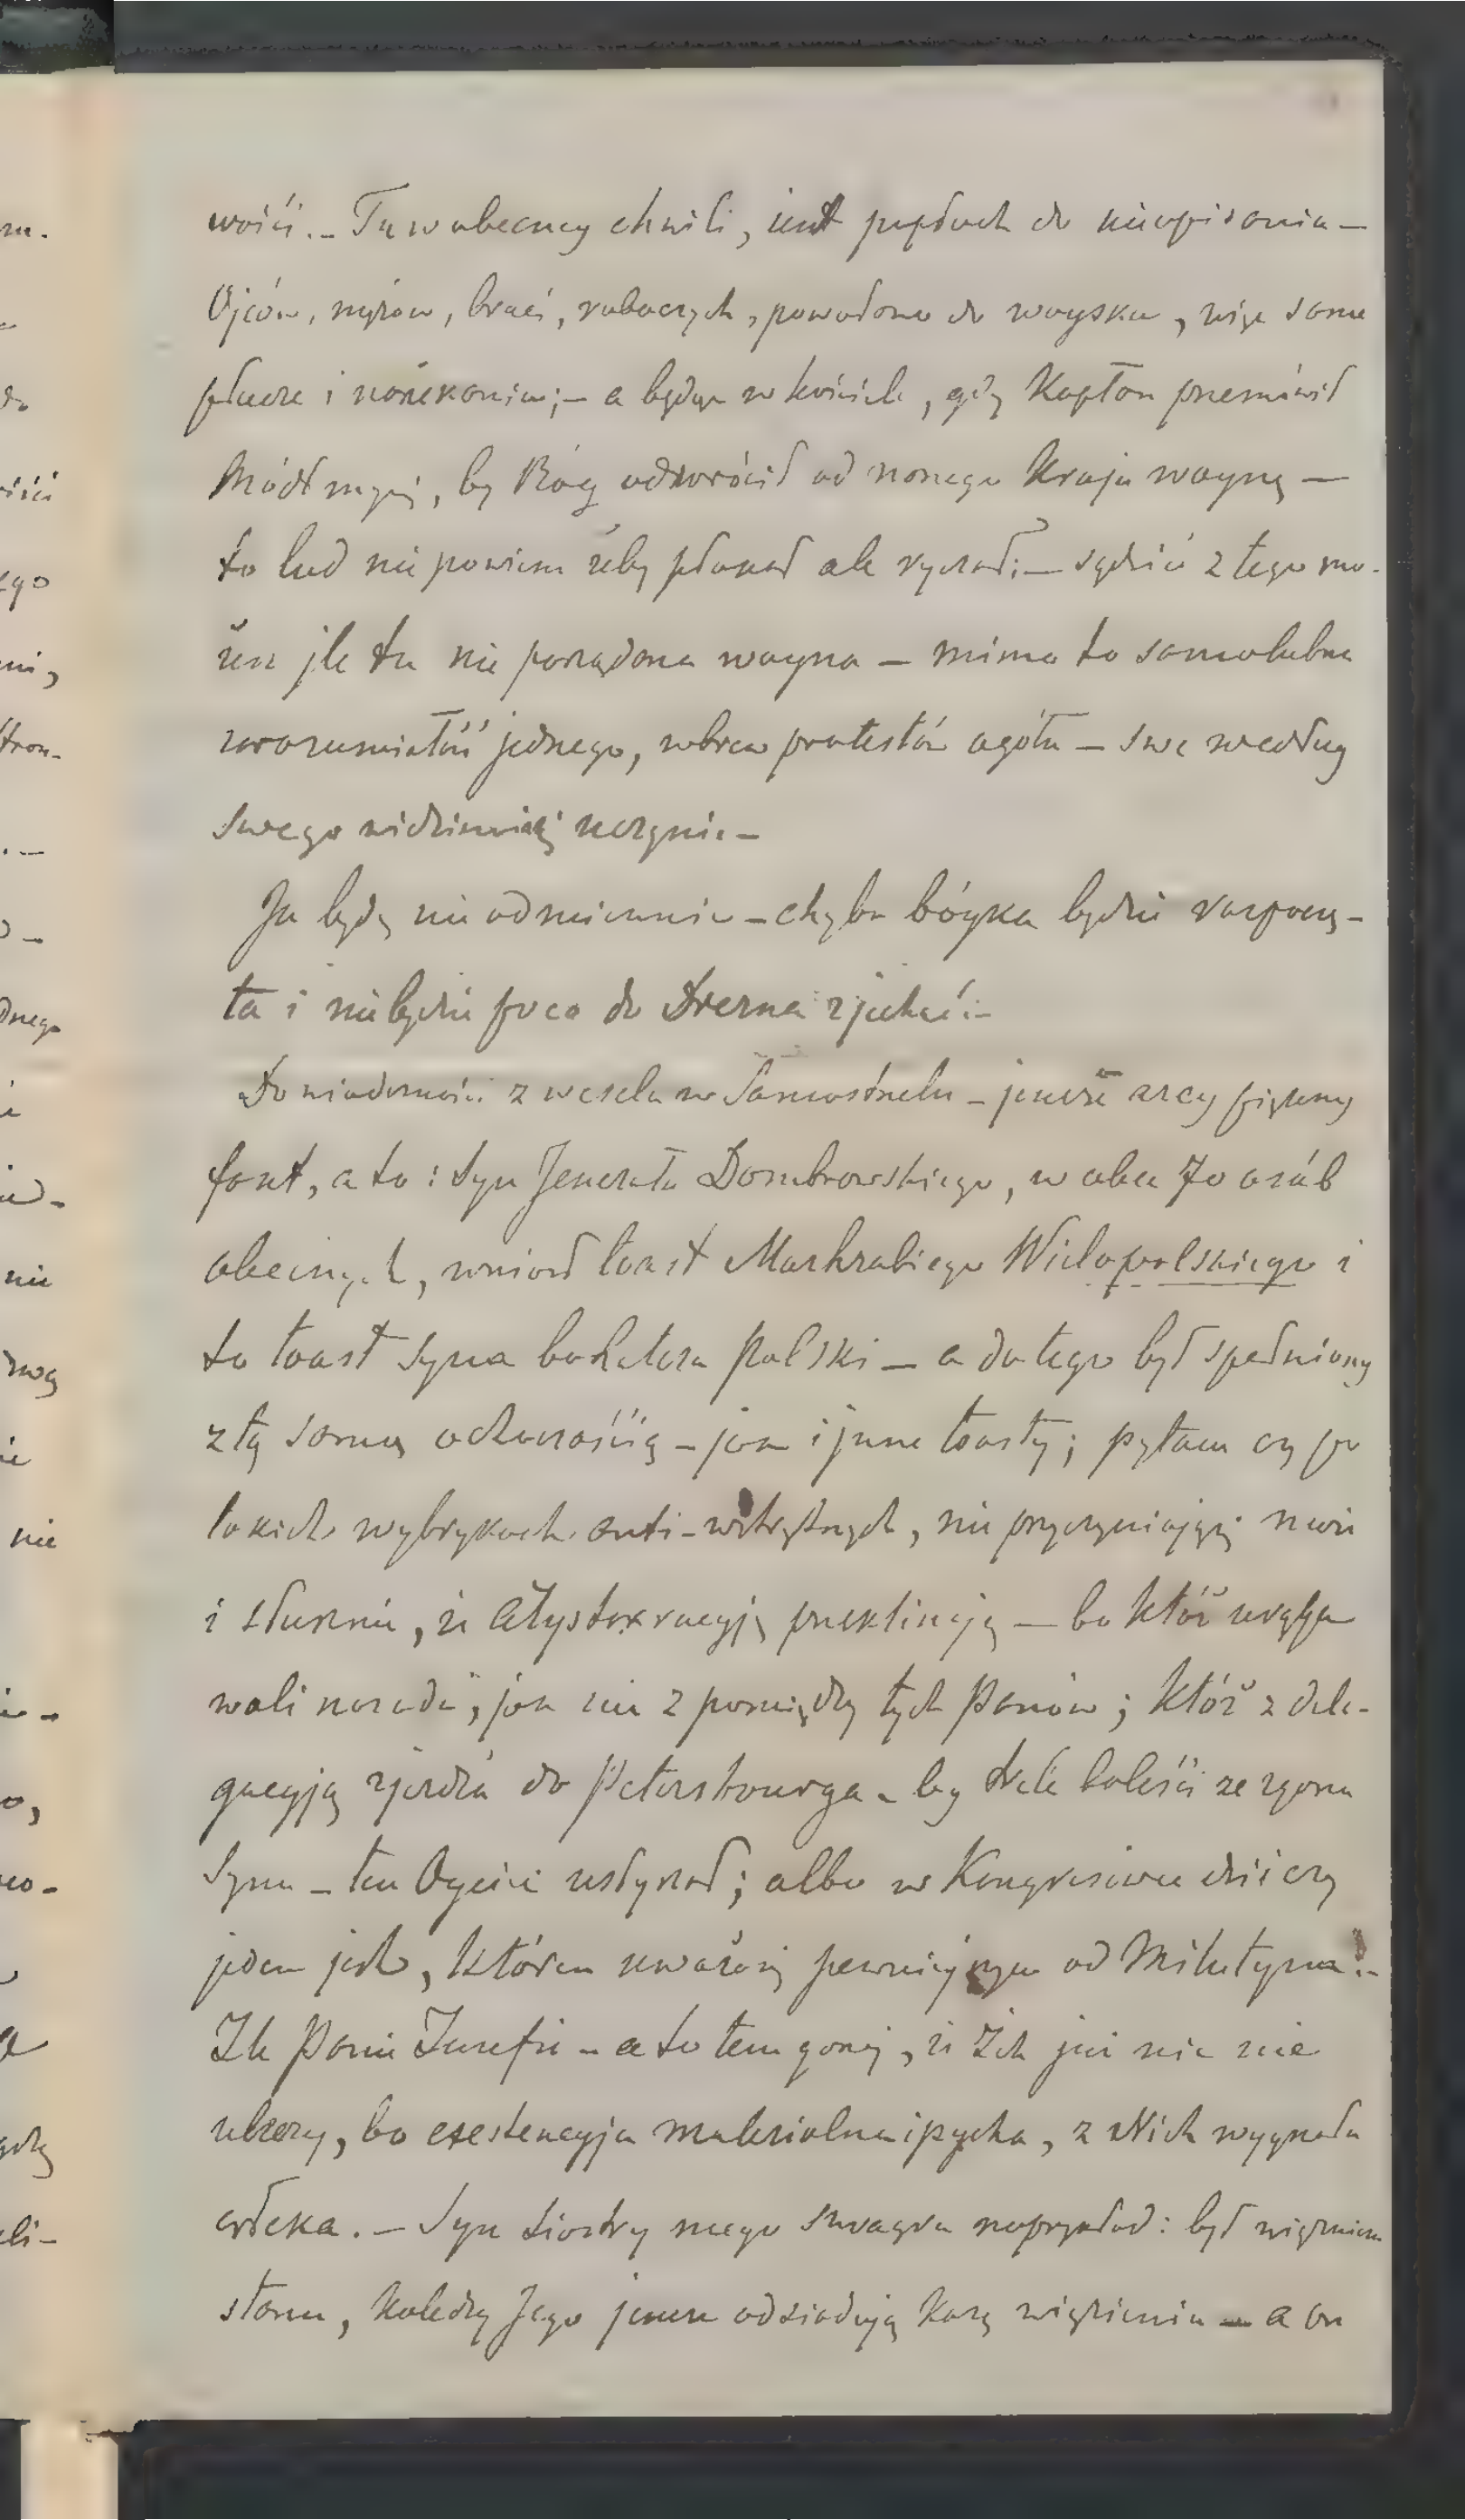 wości. – Tu w obecney chwili, jest popłoch do nieopisania –
Ojców, mężów, braci, roboczych, powołano do woyska, więc same
płacze i nażekania; – a będąc w kościele, gdy Kapłan przemówił
Módlmy się, by Bóg odwrócił od naszego Kraju woynę –
to lud nie powiem żeby płakał ale ryczał; – sądzić z tego mo-
żesz jle tu nie porządana woyna – mimo to samolubna
zarozumiałość jednego, wbrew protestów ogółu – swe według
swego widzimisię uczynie –
Ja będę nieodmiennie – chyba bóyka będzie rozpoczę-
ta i niebędzie poco do Drezna zjechać: –
Do wiadomości z wesela w Samostrzelu – jeszcze arcy piękny
fakt, a to: Syn Jenerała Dombrowskiego, w obec 70 osób
obecnych, wniosł toast Markrabiego Wielopolskiego i
to toast syna bohatera Polski – a do tego był spełniony
z tą samą ochoczością – jak i jnne toasty; pytam czy po
takich wybrykach anti-wstrętnych, nie przyczyniają się
i słusznie, że Arystokracyję przeklinają – bo któż urąga
wali narodu, jak nie z pomiędzy tych Panów; któż z dele-
gacyją zjeżdża do Petersbourga – by tam boleści ze zgonu
Syna – ten Oycie usłyszał; albo w Kongresówce dziś czy
jeden jest, którem uważasz pewnieyszym od Milutyna! –
Źle Panie Jozefie – a to tem gorzej, że Ich już nic nie
uleczy, bo exestencyja materialna i pycha, z Nich wygnała
człeka. – Syn siostry mego szwagra naprzykład: był więźniem
stanu, Koledzy Jego jeszcze odsiadują karę więzienia – a on